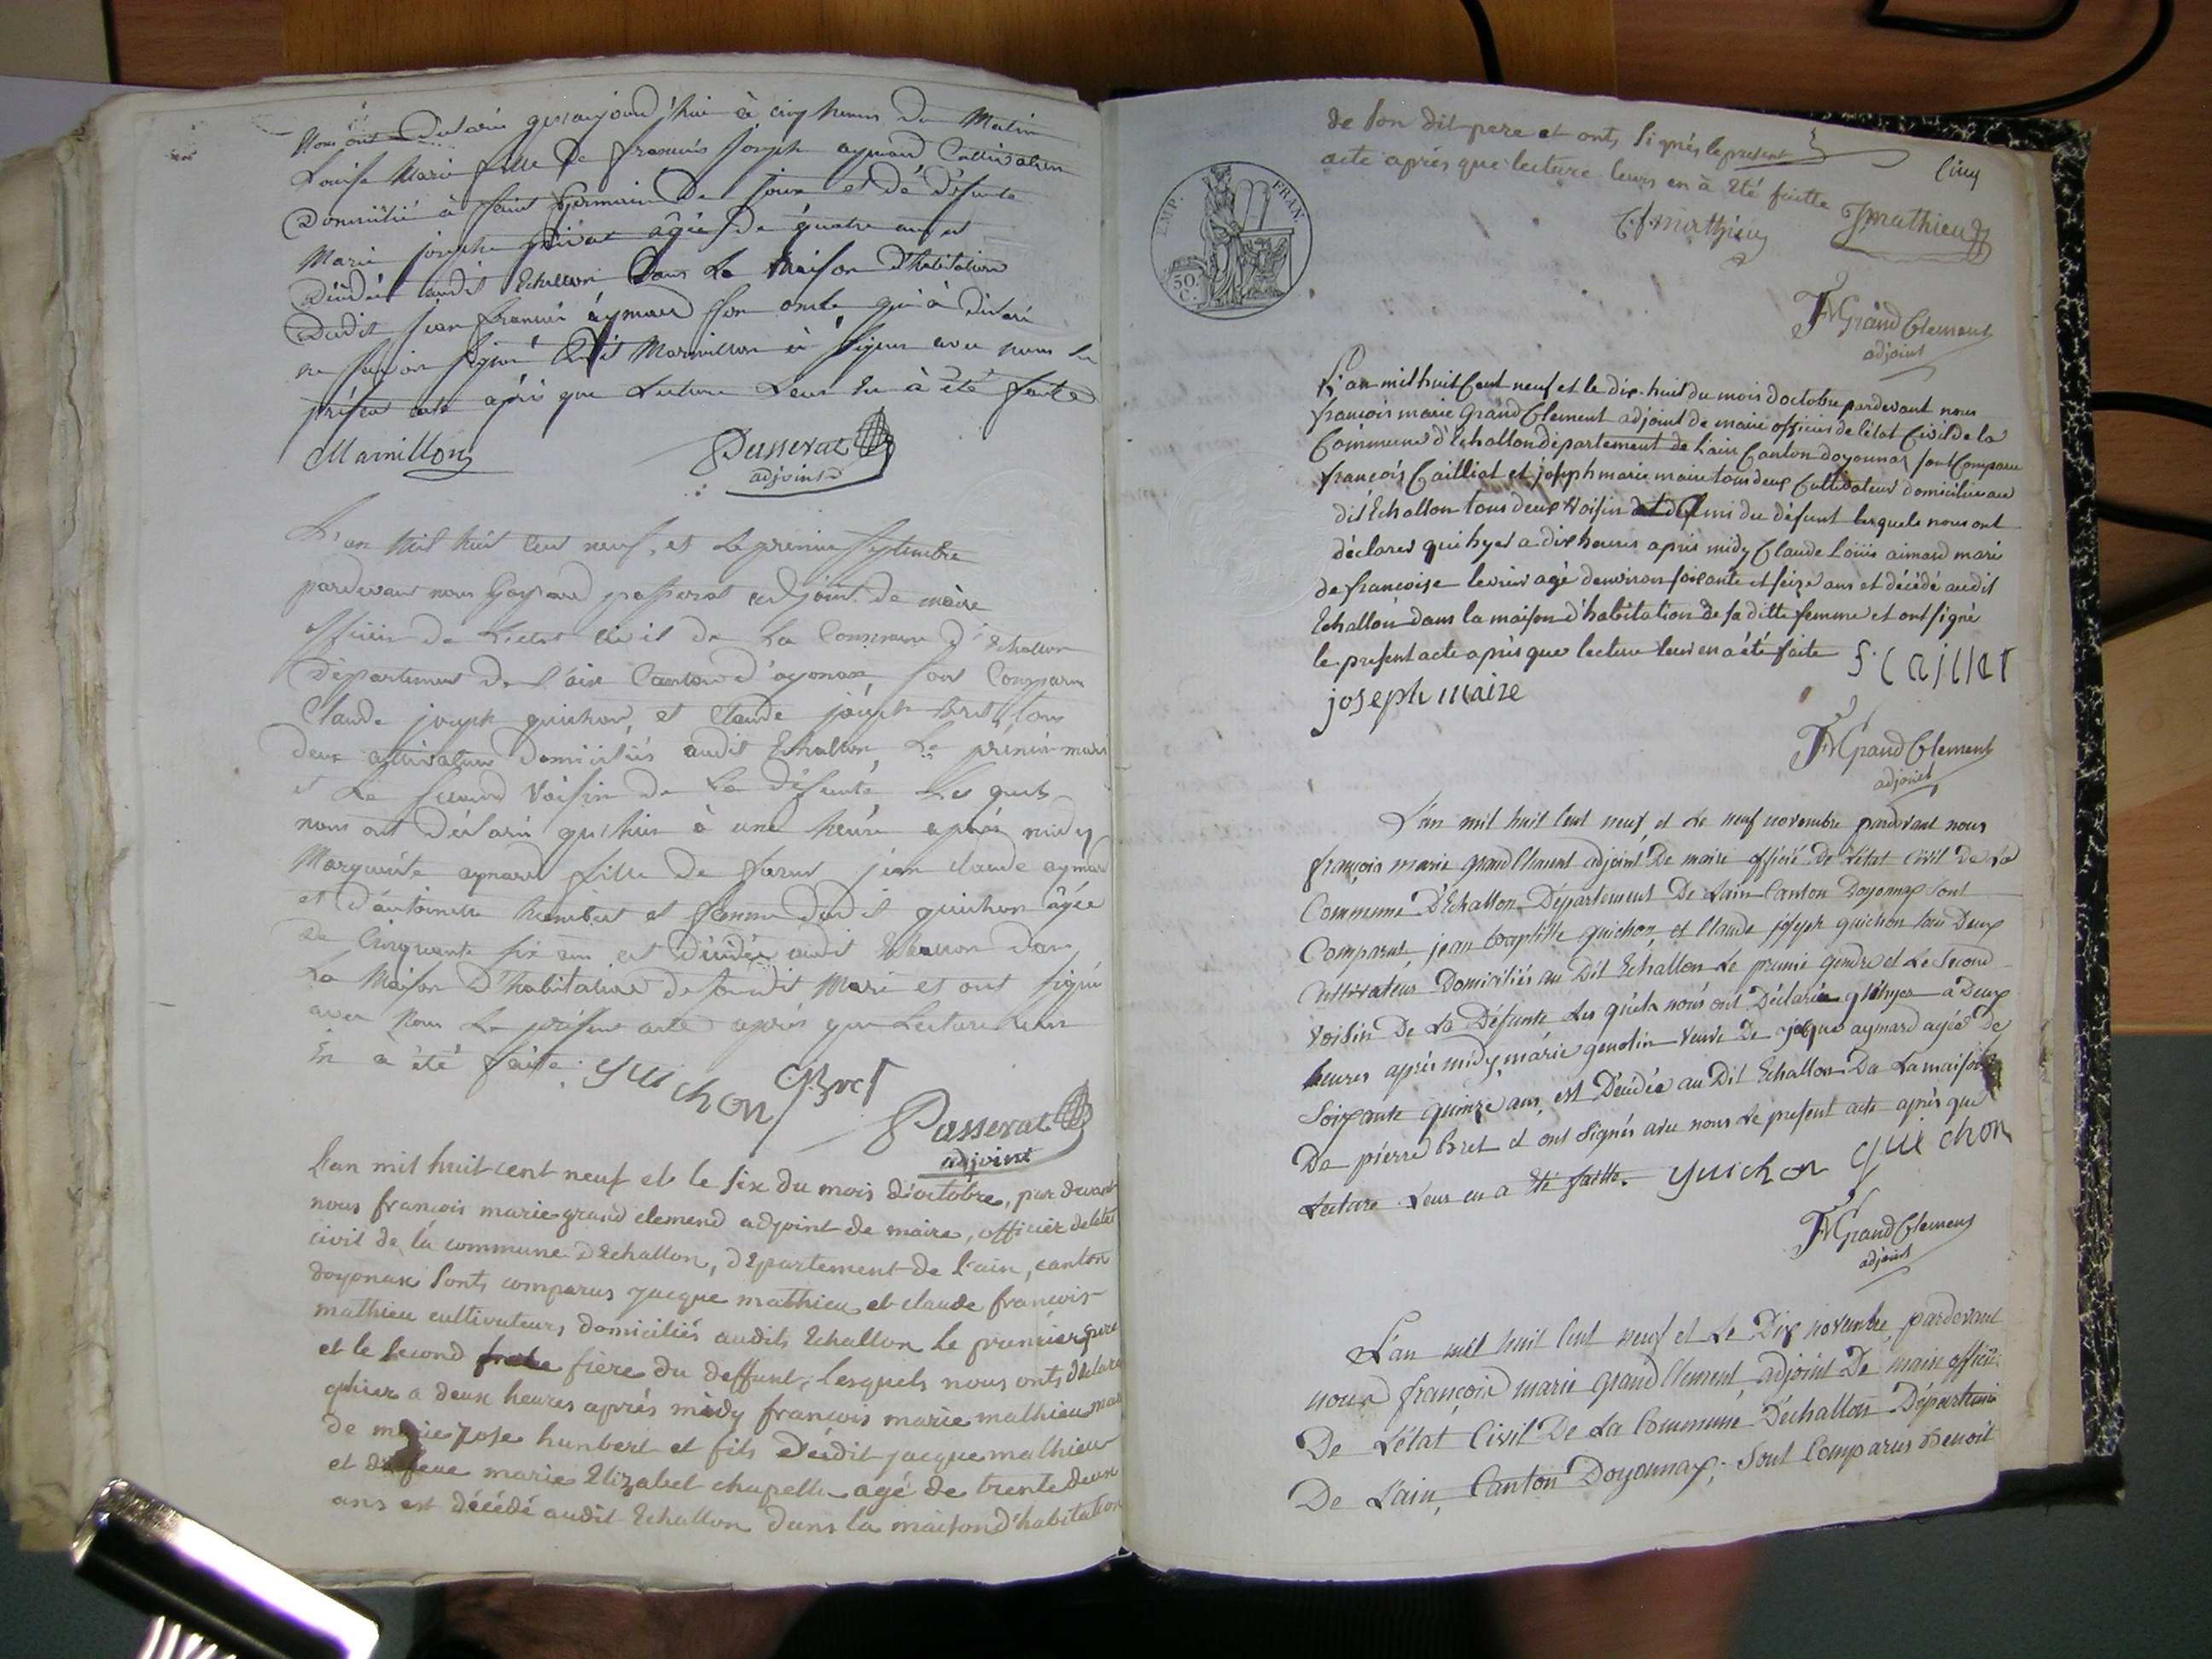 nous ont Déclarés qu'aujourd'hui à cinq heures du Matin
Louise Marie fille de françois Joseph aymard Cultivateur
Domicilié à Saint Germain De Joux et de défunte
Marie josephe âgée De quatre ans est
Décédée audit Echallon Dans La Maison D'habitation
Dudit jean françois aymard son oncle qui à déclaré
ne savoir signé Ledit Marmillon à signé avec nous le
présent acte après que Lecture Leur En à été faite
Marmillon Passerat
adjoint
L'an Mil huit Cent neuf, et Le premier septembre
pardevant nous Gaspard passerat adjoint de maire
officier de L'état civil de La Commune d'Echallon
département De L'ain Canton d'oyonax, sont Comparu
Claude joseph guichon, et Claude joseph Bret, tous
deux cultivateurs Domiciliés audit Echallon, Le prémier mari
et Le second Voisin de La Défunte Les quels
nous ont Déclaré qu'hier à une heure après midy
Marguerite aymard fille De feus jean claude aymard
et d'antoinette humbert et femme dudit guichon âgée
De Cinquante six ans est décédée audit Echallon dans
La Maison D'habitation de sondit Mari et ont signé
avec Nous Le présent acte après que Lecture Leur
En à été faite. guichon CJBret
Passerat
adjoint
L'an mil huit cent neuf et le six du mois d'octobre, par devant
nous françois marie grand clemend adjoint de maire, officier de létat
civil de la commune d'Echallon, département de l'ain, canton
doyonax sonts comparus jacque mathieu et claude françois
mathieu cultivateurs domiciliés audits Echallon le premier pere
et le second frere du deffunt, lesquels nous onts déclaré
qu'hier a deux heures aprés midy francois marie mathieu mari
de marie jose humbert et fils dudit jacque mathieu
et de feue marie Elizabet chapelle agé de trente deux
ans est décédé audit Echallon dans la maison d'habitation
de son dit pere et onts signés le present
acte aprés que lecture leurs en à été faitte
Cinq
EMP. FRAN.
50 C.
C.f. mathieu Jmathieu
FMGrand Clement
adjoint
L'an mil huit Cent neuf et le dix-huit du mois d'octobre pardevant nous
françois marie Grand Clement adjoint de maire officier de létat Civil de la
Commune d'Echallon département de lain Canton doyonnax sont Comparu
françois Cailliat et joseph marie maire tous deux Cultivateur domicilie au
dit Echallon tous deux Voisin et ami du défunt lesquels nous ont
déclarer qui hyer a dix heures apris midy Claude Loüis aimard mari
de francoise levrier agé denviron soixante et seize ans et décédé audit
Echallon dans la maison d'habitation de sa ditte femme et ont signé
le present acte après que lecture leur en a été faite F. Caillat
joseph maire
FMGrand Clement
adjoint
L'an mil huit Cent neuf, et Le neuf novembre pardevant nous
françois marie grand Clement adjoint De maire officié De L'état civil De La
Commune D'Echallon, Département De Lain Canton Doyonnax sont
Comparut jean baptiste guichon, et Claude joseph guichon tous Deux
Cultivateur Domiciliés au Dit Echallon Le premié gendre et Le second
voisin De La Défunte Les quels nous ont Déclarés qu'hyer a Deux
heures après midy marie genolin veuve De jacque aymard agée De
Soixante quinze ans, est Décédée au Dit Echallon Da La maison
De pierre Bret et ont signés avec nous Le present acte après que
Lecture Leur en a Eté faitte. guichon guichon
FMGrand Clement
adjoint
L'an mil huit Cent neuf et Le Dix novembre pardevant
nous françois marie grand Clement, adjoint De maire officié
De L'état Civil De La Commune D'échallon Département
De L'ain, Canton Doyonnax; Sont Comparus Benoit